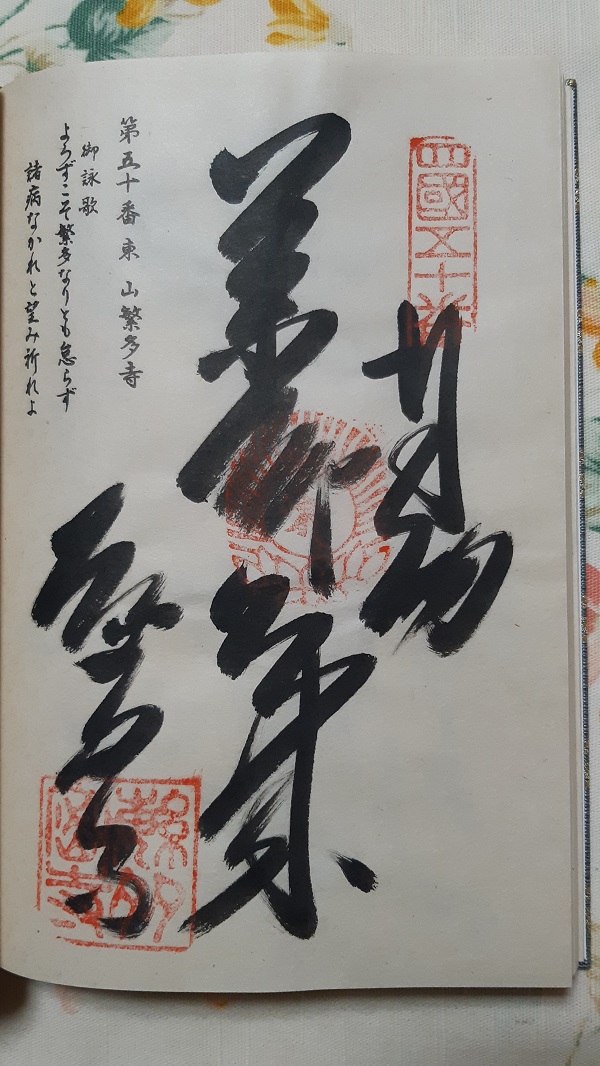 四國五十番
薬師如来
繁多寺
第五十番 東山繁多寺
御詠歌
よろずこそ繁多なりとも怠らず
諸病なかれと望み祈れよ